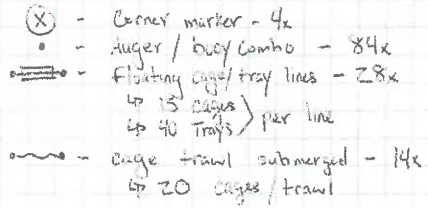 X - Corner marker - 4x
- Auger / buoy combo - 84x
- Floating cage/tray lines - 28x
↳ 15 cages
↳ 40 Trays } per line
- cage trawl submerged - 14x
↳ 20 cages/trawl